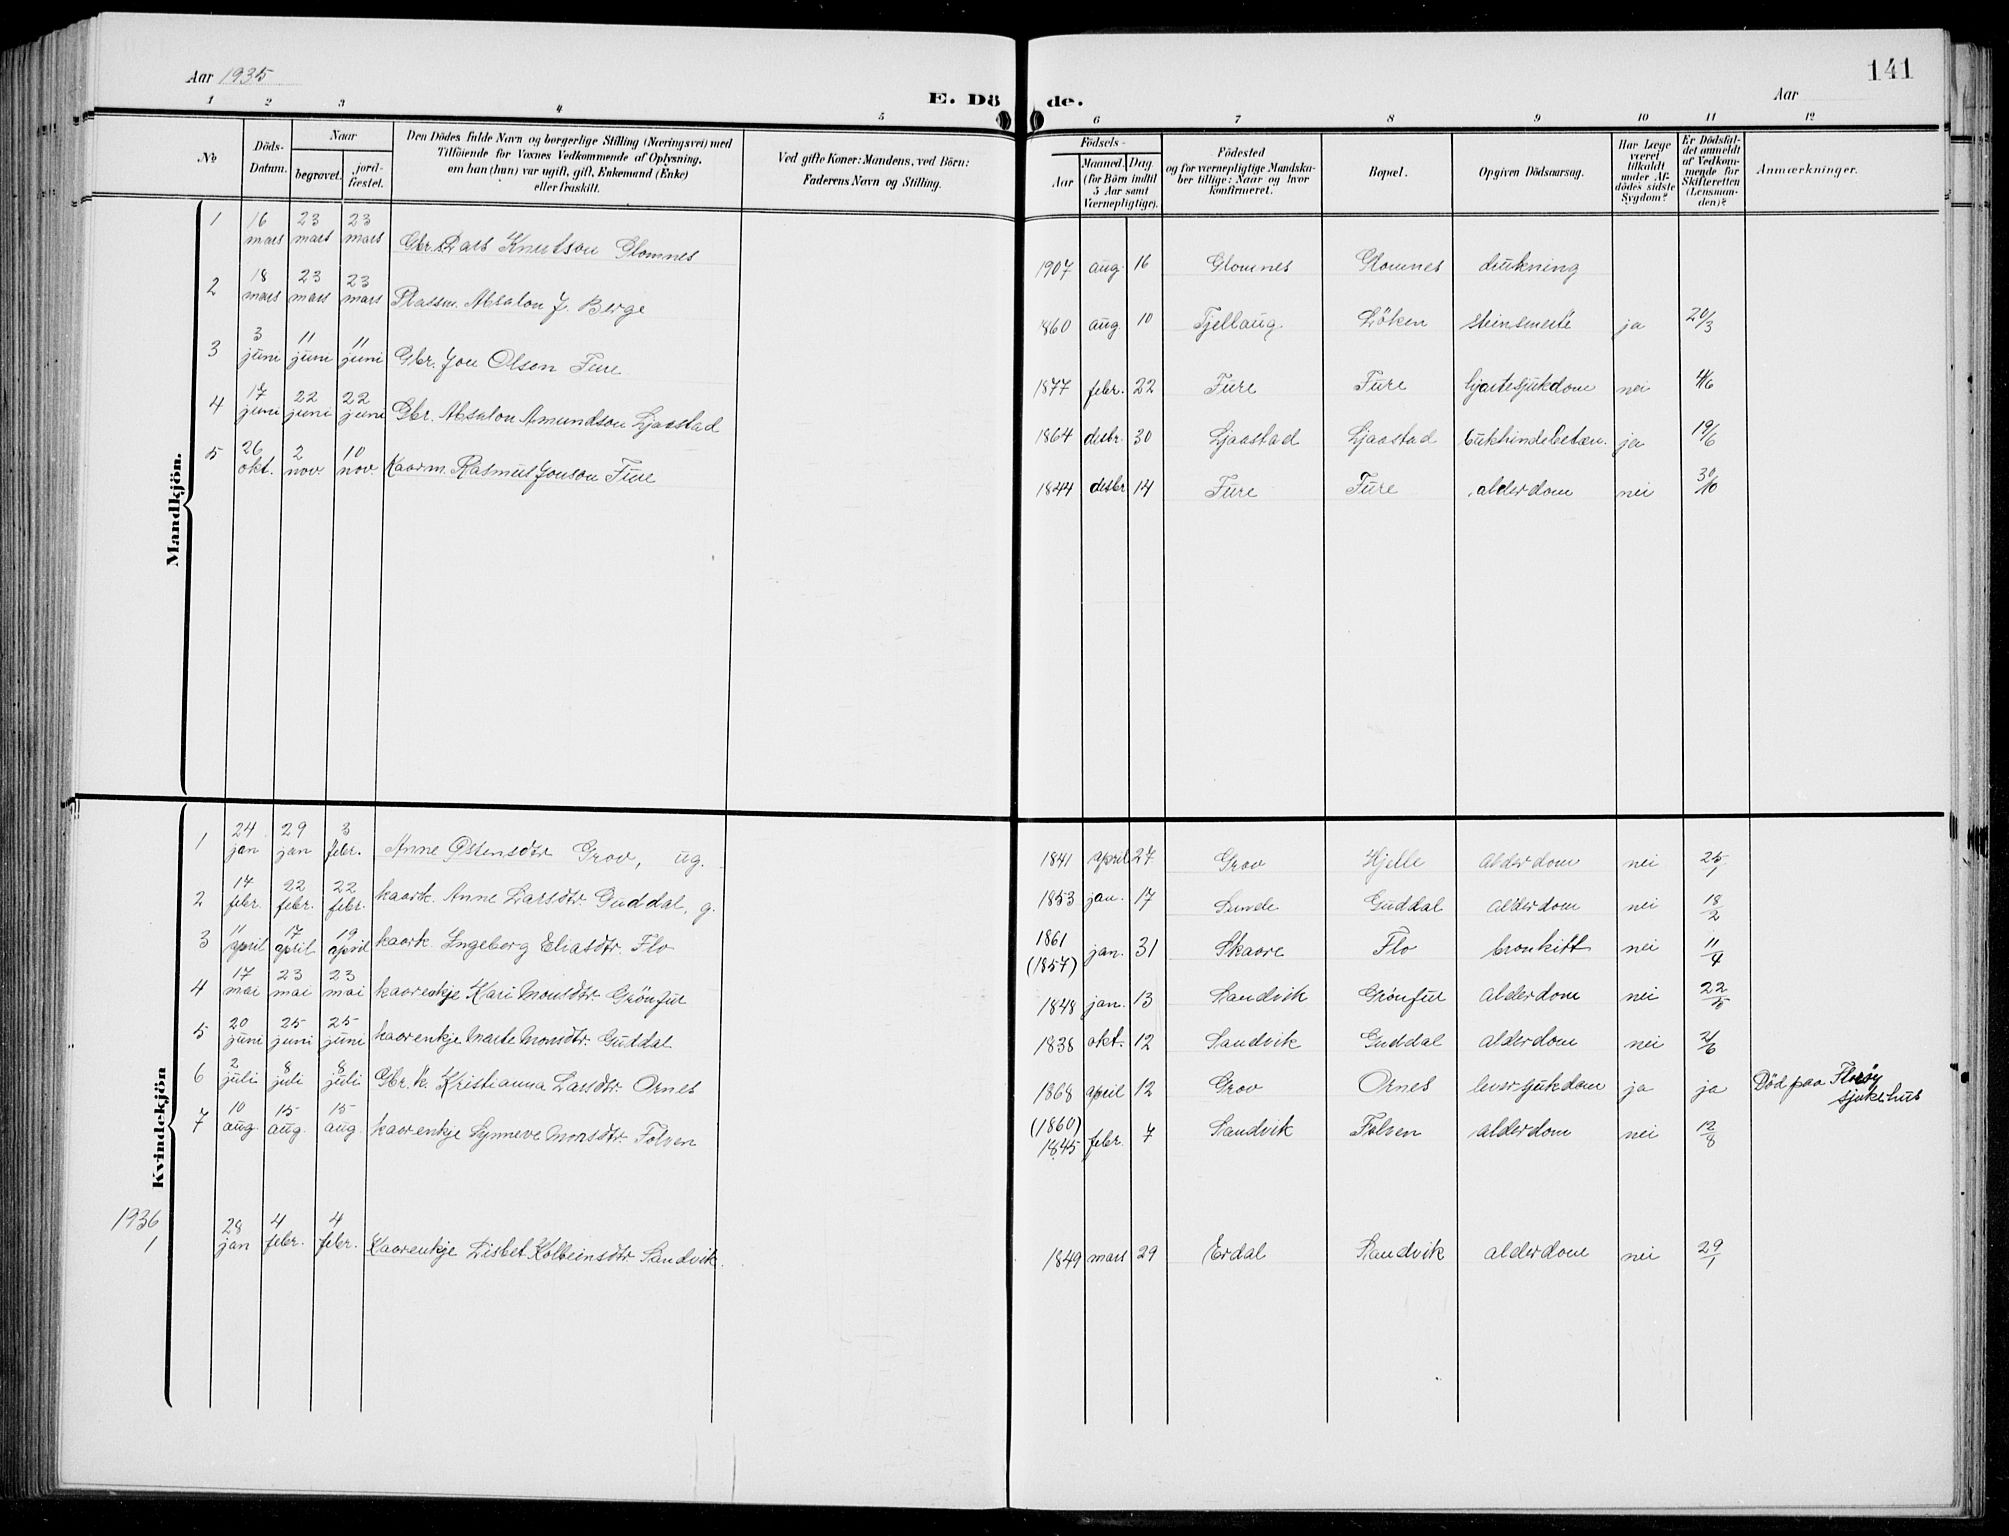 Aar 1935
141
E. Dö de.
Aar
1 2 3 4 5 6 7 8 9 10 11 12
No
Döds-
Datum.
Naar
begravet.
jord-
fæstet.
Den Dödes fulde Navn og borgerlige Stilling (Næringsvei) med
Tilföiende for Voxnes Vedkommende af Oplysning,
om han (hun) var ugift, gift, Enkemand (Enke)
eller fraskilt.
Ved gifte Koner: Mandens, ved Börn:
Faderens Navn og Stilling.
Födsels-
Aar
Maaned. Dag.
(for Börn indtil
5 Aar samt
Værnepligtige).
Födested
og for værnepligtige Mandska-
ber tillige: Naar og hvor
konfirmeret.
Bopæl.
Opgiven Dödsaarsag.
Har Læge
været
tilkaldt
under Af-
dödes sidste
Sygdom?
Er Dödsfal-
det anmeldt
af Vedkom-
mende for
Skifteretten
(Lensman-
den)?
Anmærkninger.
Mandkjön.
1 16 mars 23 mars 23 mars Gbr. Lars Knutson Glomnes 1907 aug. 16 Glomnes Glomnes drukning
2 18 mars 23 mars 23 mars Plassm. Absalon J. Berge 1860 aug 10 Fjellaug Löken steinsmerte ja 20/3
3 3 juni 11 juni 11 juni Gbr. Jon Olson Fure 1877 febr. 22 Fure Fure hjartesjukdom nei 4/6
4 17 juni 22 juni 22 juni Gbr. Absalon Amundson Ljaastad 1864 desbr. 30 Ljaastad Ljaastad bukhindebetæn. ja 19/6
5 26 okt. 2 nov. 10 nov. Kaarm. Rasmus Jonson Fure 1844 desbr 14 Fure Fure alderdom nei 30/10
Kvindekjön
1 24 jan 29 jan 3 febr. Anne Østensdtr Grov, ug. 1841 april 27 Grov Hjelle alderdom nei 25/1
2 17 febr. 22 febr. 22 febr. kaark. Anne Larsdtr. Guddal, g. 1853 jan. 17 Sunde Guddal alderdom nei 18/2
3 11 april 17 april 19 april kaark Ingeborg Eliasdtr. Flo 1861 (1857) jan. 31 Skaare Flo bronkitt nei 11/4
4 17 mai 23 mai 23 mai kaarenkje Kari Monsdtr. Grönfur 1848 jan. 13 Sandvik Grönfur alderdom nei 22/5
5 20 juni 25 juni 25 juni kaarenkje Marte Monsdtr. Guddal 1838 okt. 12 Sandvik Guddal alderdom nei 21/6
6 2 juli 8 juli 8 juli Gbr. k. Kristianna Larsdtr. Ornes 1868 april 12 Grov Ornes leversjukdom ja ja Död paa Florøy
sjukehus
7 10 aug. 15 aug. 15 aug. kaarenkje Synneve Monsdtr. Folven (1860) 1845 febr. 7 Sandvik Folven alderdom nei 12/8
1936
1 28 jan 4 febr. 4 febr. Kaarenkje Lisbet Kolbeinsdtr. Sandvik. 1849 mars 29 Erdal Sandvik alderdom nei 29/1